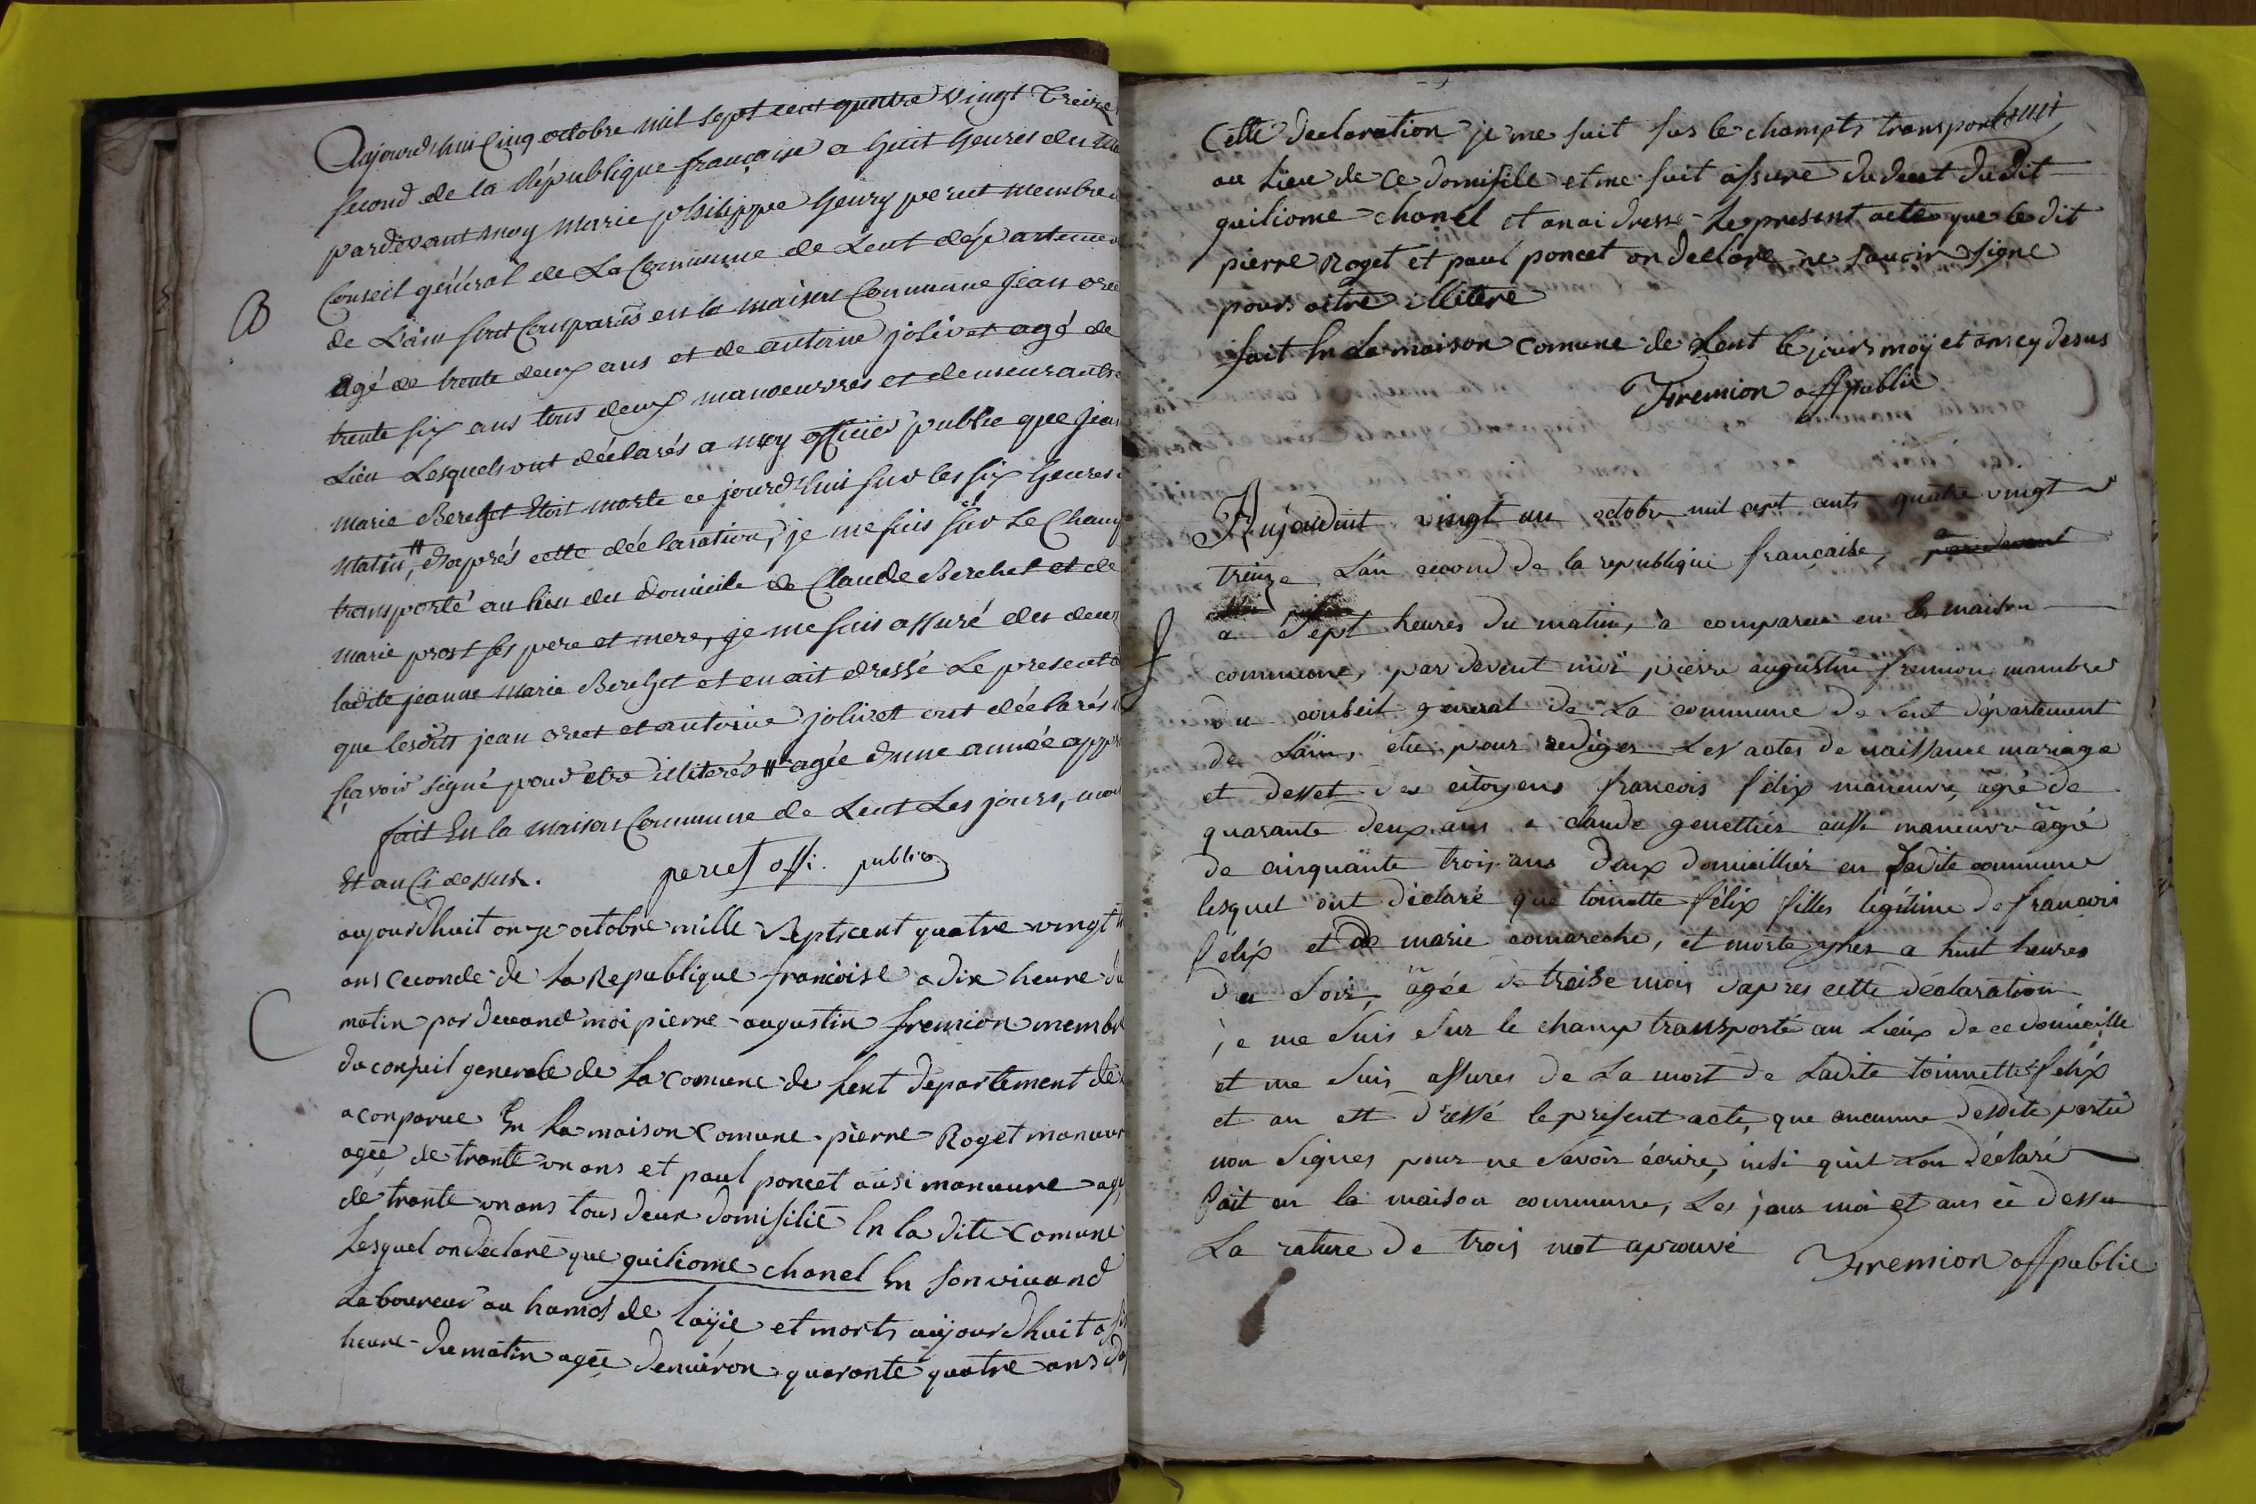 B
Aujourd'huy Cinq octobre mil sept cent quattre vingt treize
second de la République française a huit heures du
pardevant moy Marie philippe henry perret membre
Conseil général de La Commune de Lent départeme
de L'ain sont Comparus en la maison Commune Jean
agé de trente deux ans et de antoine jolivet agé de
trente six ans tous deux manoeuvres et demeurants
Lieu Lesquels ont déclarés a moy officier public que Jean
marie Berchet Etoit morte ce jourd'hui sur les six heures
matin ", d'après cette déclaration, je me suis sur Le Champ
transporté au lieu du domicile de Claude Berchet et de
marie prost ses pere et mere, je me suis assuré du deces
ladite jeanne marie Berchet et en ait dressé Le present
que lesdits jean oret et antoine jolivet ont déclarés
sçavoir signé pour etre illiterés " agée d'une année
fait En la maison Commune de Lent Les jours, mois
Et an Ci dessus.
perret offi. public
C
aujourdhuit onze octobre mille septscent quatre vingt
ans ceconde de la Republique francoise a dix heure du
matin par devand moi pierre augustin fremion membr
du conseil generale de la comune de Lent departement de
a conparue En la maison Comune pierre Roget manuvr
agée de trante un ans et paul poncet ausi manuvre
de trante un ans tous deux domisilié En la dite Comune
Lesquel on declaré que guiliome chanel En son vivand
Laboureur au hamos de layie et morts aujourdhuit a
heure du matin agée denviron quarante quatre ans

huit
Cette declaration je me suit sus le champts transporte
au Lieu de ce domisile et me suit assuré du deset dudit
guiliome chanel et an ai dressé le present acte que le dit
pierre Roget et paul poncet on declaré ne savoir signé
pour aitre illiteré
fait En la maison Comune de Lent le jours moÿ et an cy desus
Fremion off public
f
Aujourduit vingt un octobre mil sept cents quatre vingt
treize L'an second de la republique française, par devant
a sept heures du matin, à comparue en la maison
commune, par devent moi pierre augustin fremion mambre
du conseil general de La commune de Lent département
de L'ain, élu pour rediger Les actes de naissance mariage
et desset des citoyens francois félix maneuvre, agé de
quarante deux ans e claude genettier aussi maneuvre agé
de cinquante trois ans deux domicillier en Ladite commune
lesquel ont déclaré que toinette félix filles légitime de francois
félix et de marie comareche, et morte yhier a huit heures
du soir, agée de treise mois d'après cette déclaration
je me suis sur le champ transporté au Lieux de ce domicille
et me suis assures de La mort de Ladite toinnette félix
et an ett dressé le present acte, que aucunne desdite partie
non signes pour ne savoir écrire, insi quil Lon déclaré
Fait en la maison commune, Les jour moi et ans ci dessu
La rature de trois mot aprouvé
Fremion off public